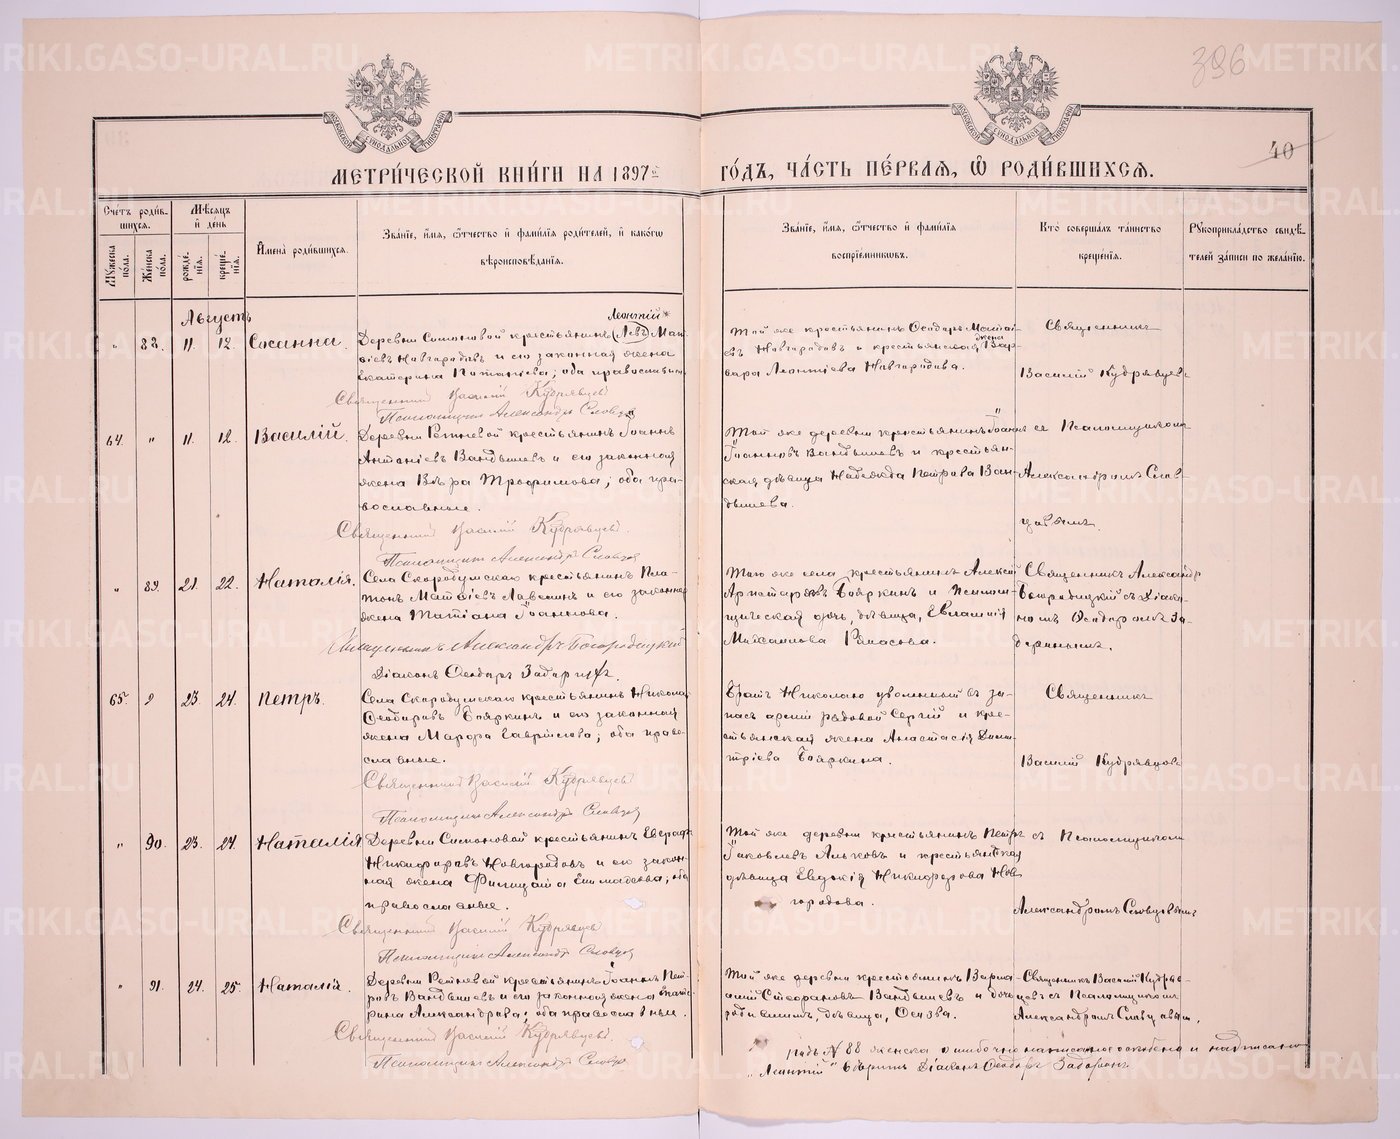 396
40
МЕТРИ́ЧЕСКОЙ КНИ́ГИ НА 1897й
ГО́ДЪ, ЧА́СТЬ ПЕ́РВАЯ, Ѡ РОДИ́ВШИХСЯ.
Сче́тъ роди́вшихся.
Мꙋ́жеска по́ла.
Же́нска по́ла.
Мѣ́сяцъ и де́нь
рожде́нїя.
креще́нїя.
И́мена роди́вшихся.
Зва́нїе, и́мя, ѻ́тчество и фами́лїя роди́телей, и како́гѡ
вѣроисповѣ́данїя.
Зва́нїе, и́мя, ѻ́тчество и фами́лїя
воспрїе́мниковъ.
Кто̀ соверша́лъ та́инство
креще́нїя.
Рꙋкоприкла́дство свидѣ́телей за́писи по жела́нїю.
Августъ
88. 11. 12. Сосанна.
Леонтій
Деревни Симоновой крестьянинъ (Левъ) Мат-
ѳіевъ Новгородовъ и его законная жена
Екатерина Потапіева; оба православные
Священникъ Василій Кудрявцевъ
Псаломщикъ Александръ Словцовъ
Той же крестьянинъ Ѳеодоръ Матѳі-
евъ Новгородовъ и крестьянская жена Вар-
вара Леонтіева Новгородова.
Священникъ
Василій Кудрявцевъ
64. " 11. 12. Василій.
Деревни Ретневой крестьянинъ Іоаннъ
Антоніевъ Вандышевъ и его законная
жена Вѣра Трофимова; оба пра-
вославные.
Священникъ Василій Кудрявцевъ.
Псаломщикъ Александръ Словцовъ
Той же деревни крестьянинъ Іоаннъ
Іоанновъ Вандышевъ и крестьян-
ская дѣвица Надежда Петрова Ван-
дышева.
съ Псаломщикомъ
Александромъ Слов-
цовымъ.
" 89. 21. 22. Наталія.
Села Скородумскаго крестьянинъ Пла-
тонъ Матѳіевъ и его законная
жена Татіана Іоаннова.
Священникъ Александръ Богородицкій
Діаконъ Ѳеодоръ
Того же села крестьянинъ Алексій
Бояркинъ и Псалом-
щическая дочь, дѣвица, Евлампія
Михаилова
Священникъ Александръ
Богородицкій съ Діако-
номъ Ѳеодоромъ За-
65. " 23. 24. Петръ.
Села Скородумскаго крестьянинъ Николай
Ѳеодоровъ Бояркинъ и его законная
жена Марѳа Гавріилова; оба право-
славные.
Священникъ Василій Кудрявцевъ
Псаломщикъ Александръ Словцовъ
Братъ Николаю уволенный въ за-
пасъ арміи рядовой Сергій и кре-
стьянская жена Анастасія Дими-
тріева Бояркина.
Священникъ
Василій Кудрявцевъ
" 90. 23. 24. Наталія
Деревни Симоновой крестьянинъ Евграфъ
Никифоровъ Новгородовъ и его закон-
ная жена; оба
православные.
Священникъ Василій Кудрявцевъ
Псаломщикъ Александръ Словцовъ
Той же деревни крестьянинъ Петръ
Іаковлевъ Альковъ и крестьянская
дѣвица Евдокія Никифорова Нов-
городова.
съ Псаломщикомъ
Александромъ Словцовымъ
" 91. 24. 25. Наталія.
Деревни Ретневой крестьянинъ Іоаннъ Пет-
ровъ Вандышевъ и его законная жена Екате-
рина Александрова; оба православные.
Священникъ Василій Кудрявцевъ
Псаломщикъ Александръ Словцовъ
Той же деревни крестьянинъ
Стефановъ Вандышевъ и дочь
дѣвица,
Священникъ Василій Кудряв-
цевъ съ Псаломщикомъ
Александромъ Словцовымъ.
подъ № 88 женска ошибочно написанное и надписано
"Леонтій" вѣрить Діаконъ Ѳеодоръ
METRIKI.GASO-URAL.RU